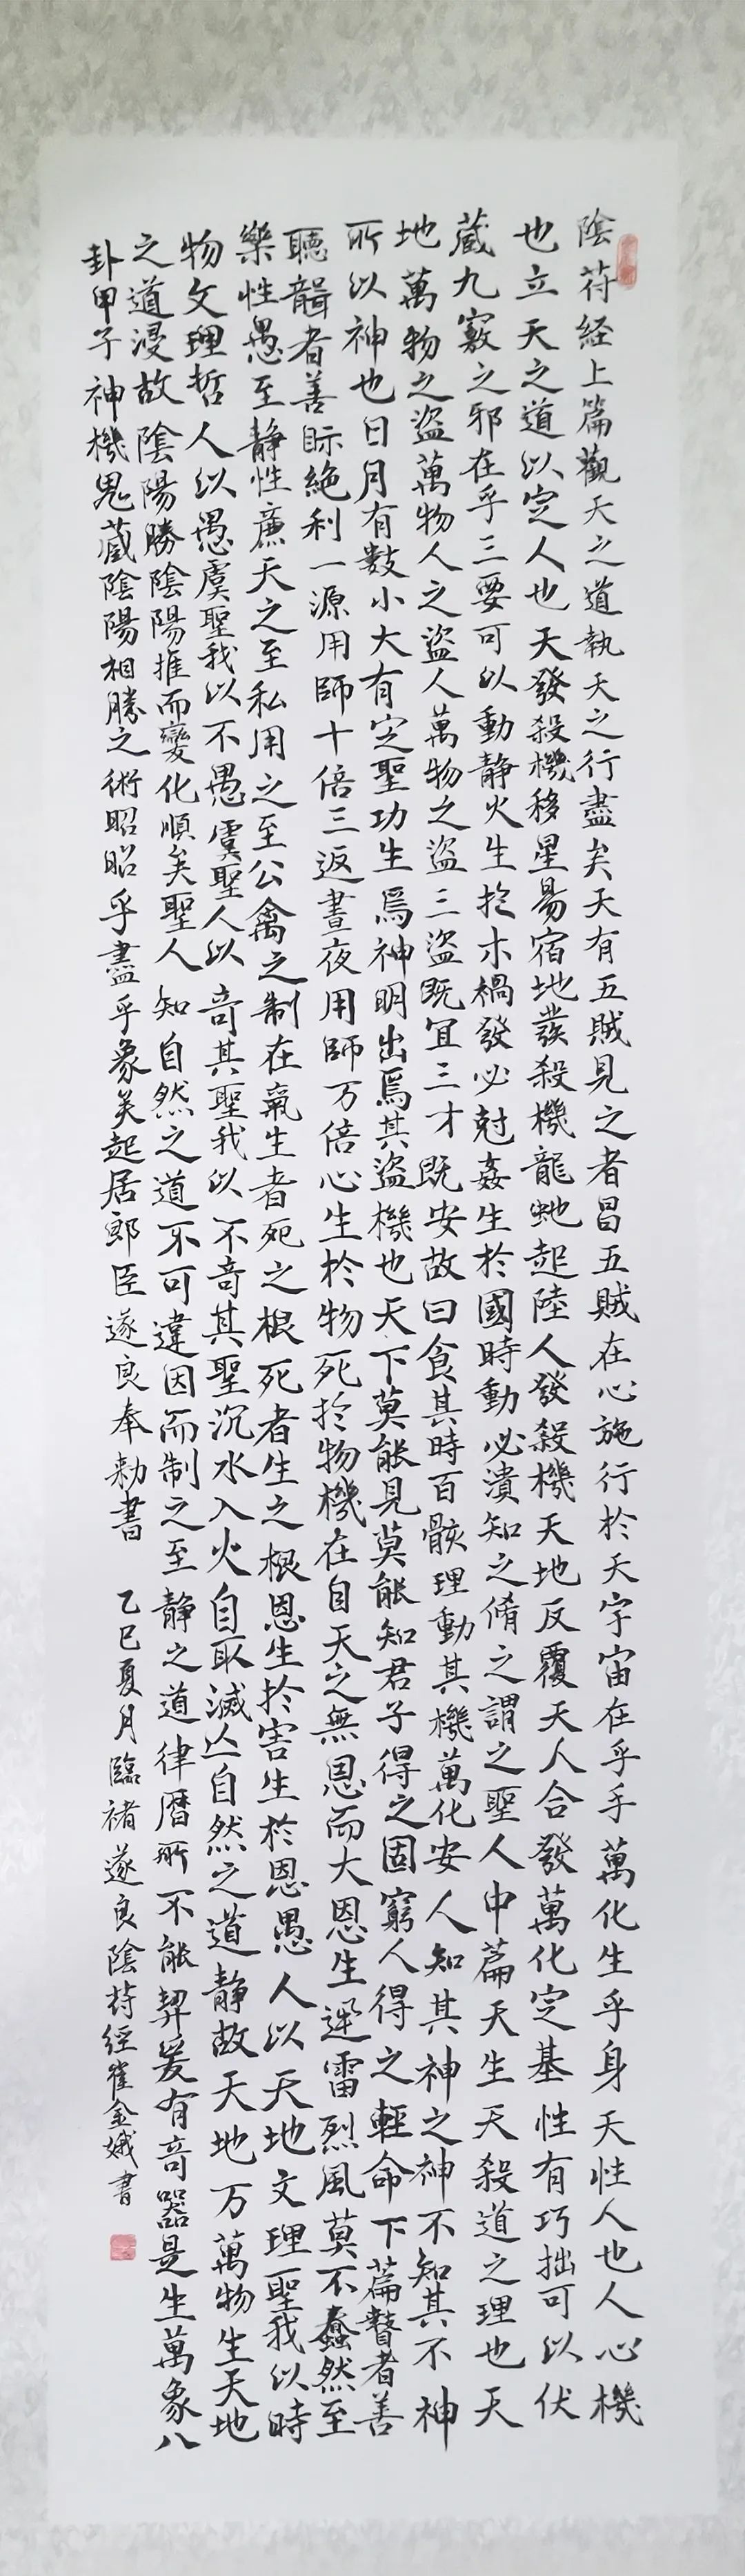 陰苻経上篇觀天之道執天之行盡矣天有五賊見之者昌五賊在心施行於天宇宙在乎手萬化生乎身天性人也人心機
也立天之道以定人也天發殺機移星易宿地發殺機龍虵起陸人發殺機天地反覆天人合發萬化定基性有巧拙可以伏
藏九竅之邪在乎三要可以動静火生扵木禍發必尅姦生於國時動必潰知之脩之謂之聖人中篇天生天殺道之理也天
地萬物之盜萬物人之盜人萬物之盜三盜既宜三才既安故曰食其時百骸理動其機萬化安人知其神之神不知其不神
所以神也日月有數小大有定聖功生焉神明出焉其盜機也天下莫能見莫能知君子得之固窮人得之輕命下篇瞽者善
聴聾者善眎絶利一源用師十倍三返晝夜用師万倍心生於物死扵物機在自天之無恩而大恩生迅雷烈風莫不蠢然至
樂性愚至静性廉天之至私用之至公禽之制在氣生者死之根死者生之根恩生扵害生於恩愚人以天地文理聖我以時
物文理哲人以愚虞聖我以不愚虞聖人以竒其聖我以不竒其聖沉水入火自取滅亾自然之道静故天地万萬物生天地
之道浸故陰陽勝陰陽推而變化順矣聖人知自然之道不可違因而制之至静之道律曆所不能契爰有竒器是生萬象八
卦甲子神機鬼藏陰陽相勝之術昭昭乎盡乎象矣起居郎臣遂良奉勅書
乙巳夏月臨褚遂良陰苻經崔金娥書